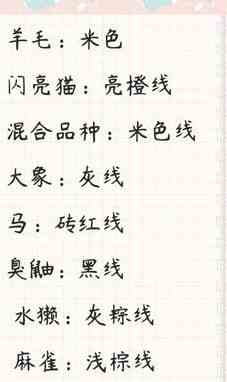 羊毛：米色
闪亮猫：亮橙线
混合品种：米色线
大象：灰线
马：砖红线
臭鼬：黑线
水獭：灰粽线
麻雀：浅棕线